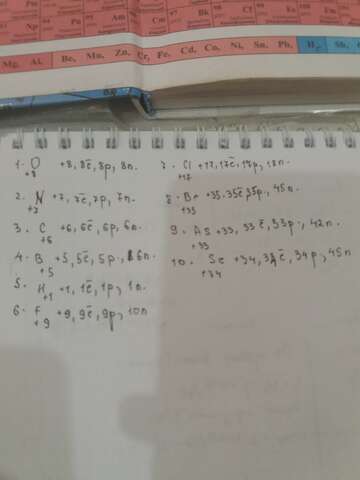 Pm Am Cm Bk Cf Es Fm
Np 94 Pu 95 Am 96 Cm 97 Bk 98 Cf 99 Es
Mg, Al, Be, Mn, Zn, Cr, Fe, Cd, Co, Ni, Sn, Pb, H₂, Sb,
1. O +8, 8ē, 8p, 8n.
+8
2. N +7, 7ē, 7p, 7n.
+7
3. C +6, 6ē, 6p, 6n.
+6
4. B +5, 5ē, 5p, 6n.
+5
5. H +1, 1ē, 1p, 1n.
+1
6. F +9, 9ē, 9p, 10n
+9
7. Cl +17, 17ē, 17p, 18n.
+17
8. Br +35, 35ē, 35p, 45n.
+35
9. As +33, 33ē, 33p, 42n.
+33
10. Se +34, 34ē, 34p, 45n
+34